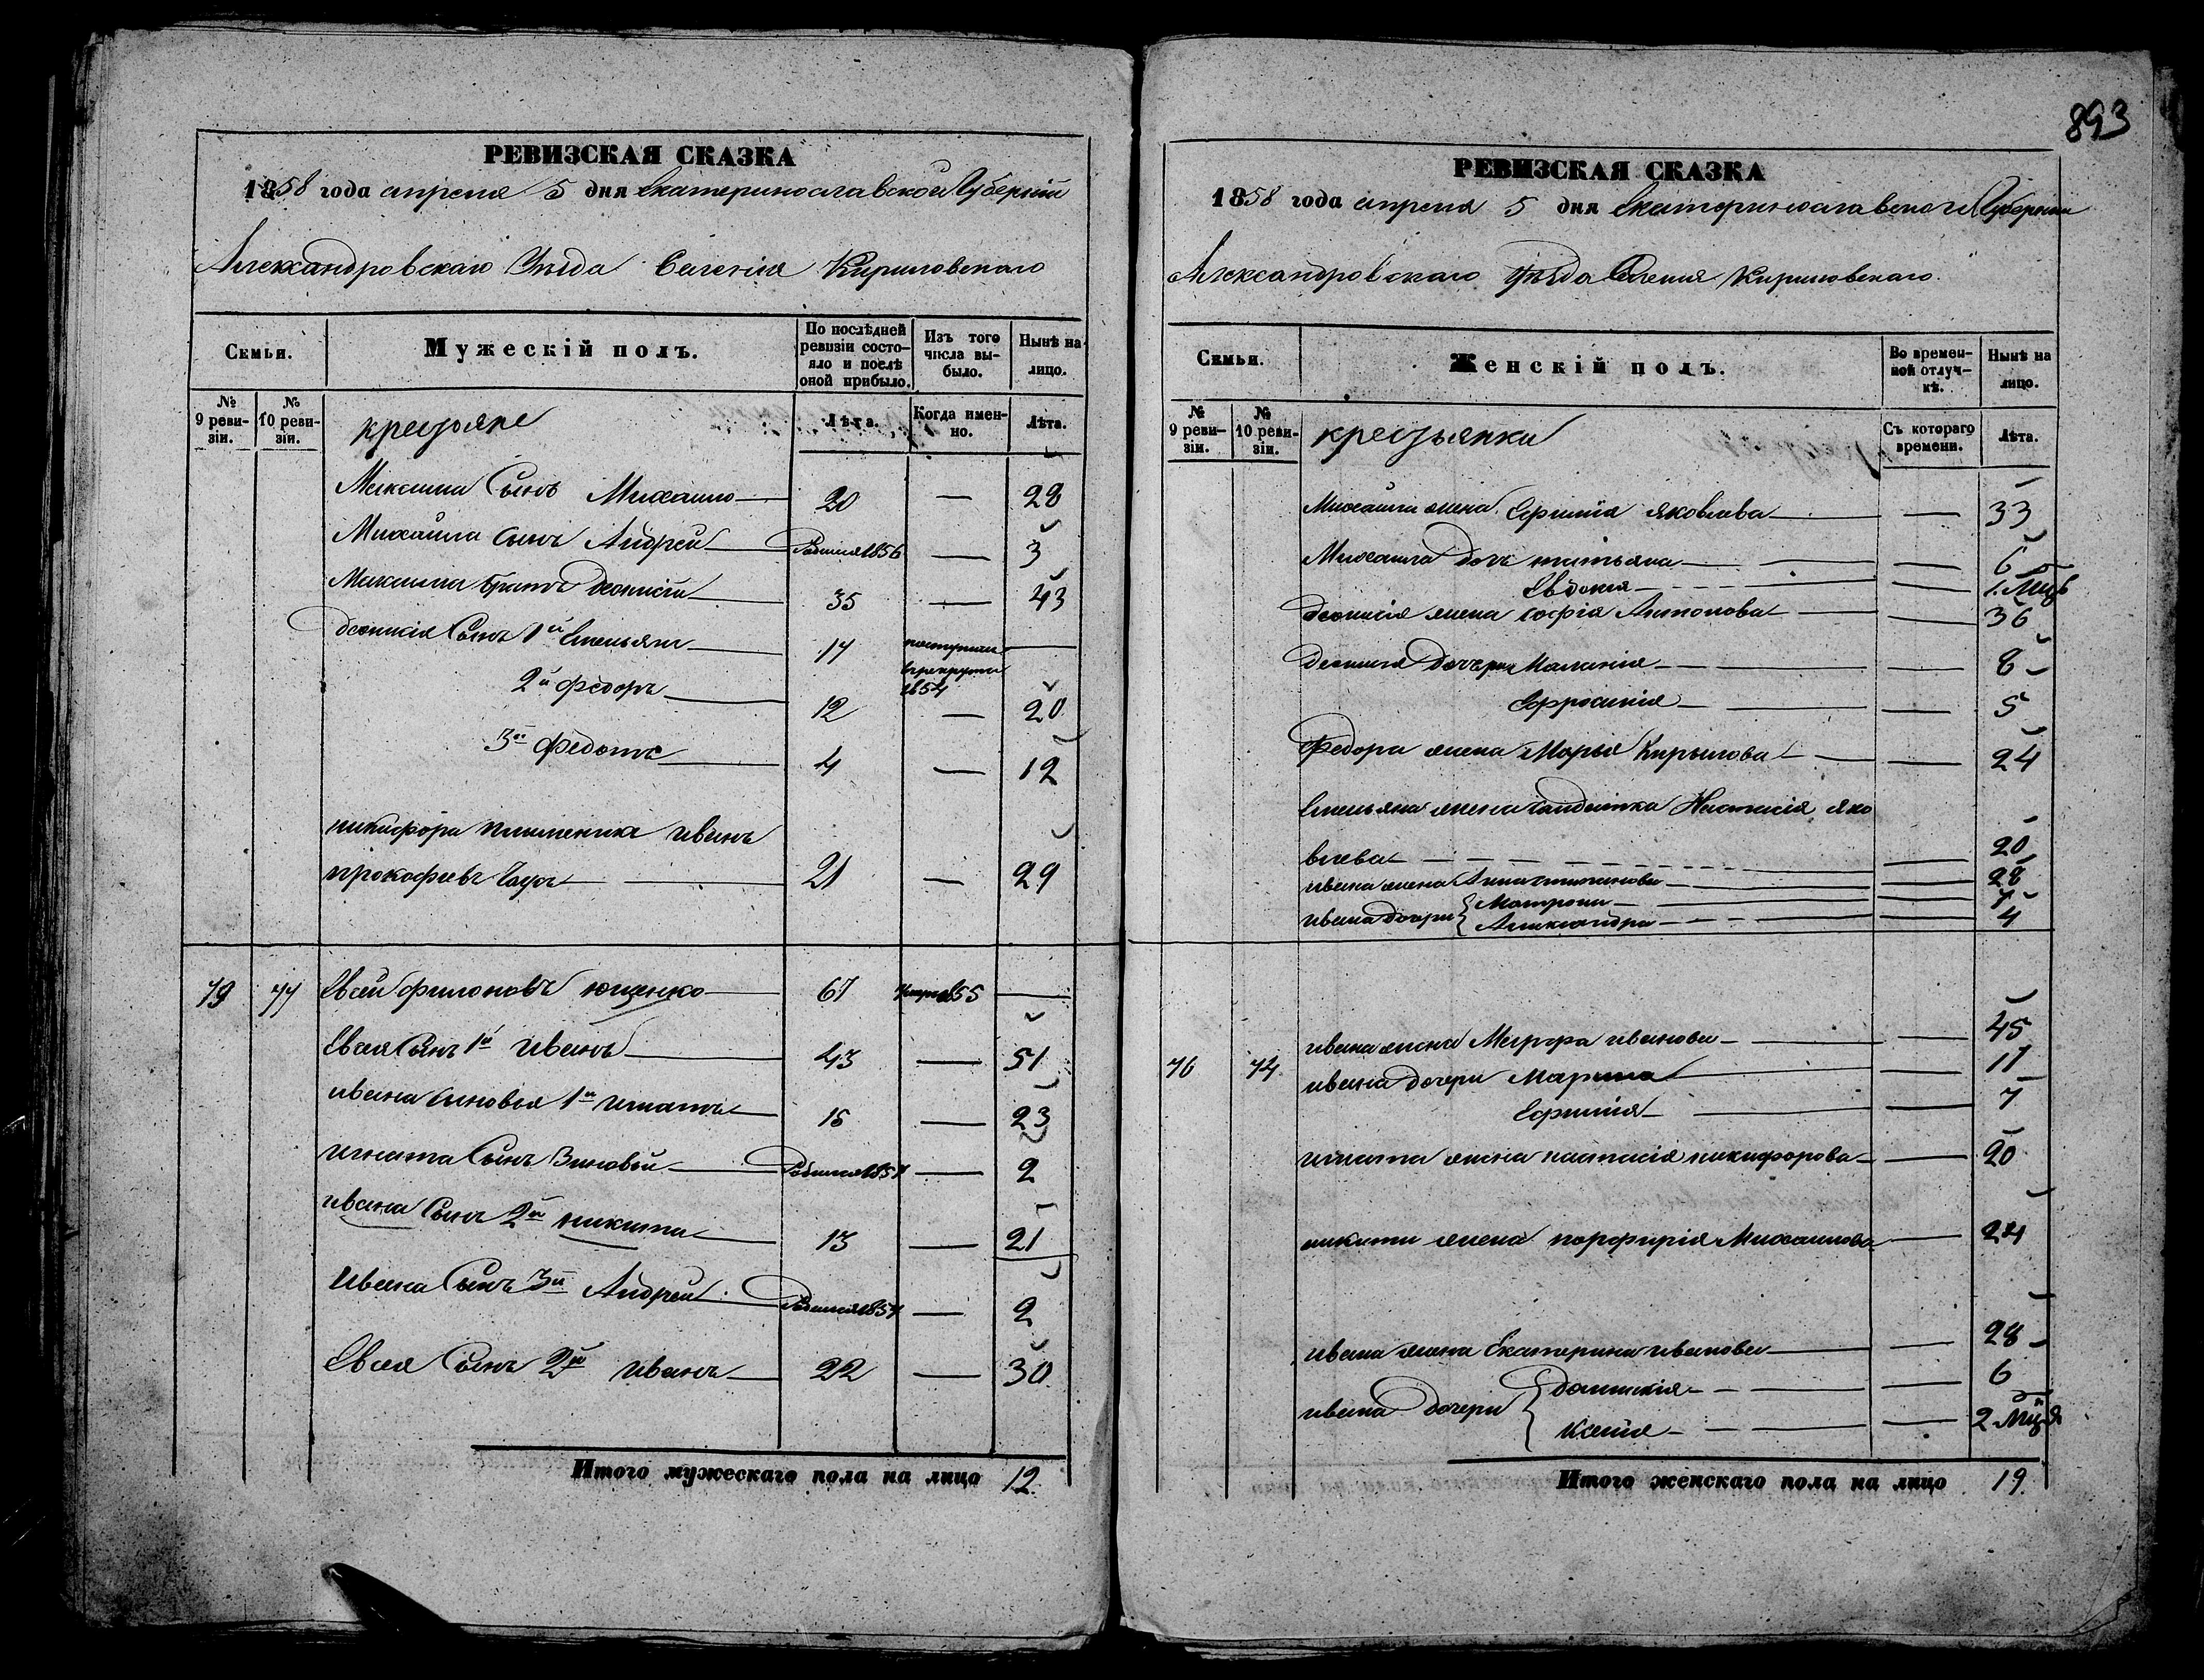 893
РЕВИЗСКАЯ СКАЗКА
1858 года апреля 5 дня Екатеринославской Губернии
Александровскаго Уѣзда Селенія Кириловскаго
Семьи.
Мужескій полъ.
По послѣдней ревизіи состояло и послѣ оной прибыло.
Изъ того числа выбыло.
Нынѣ на лицо.
№ 9 ревизіи.
№ 10 ревизіи.
крестьяне
Лѣта.
Когда именно.
Лѣта.
Максима Сынъ Михаило 20 — 28
Михаила сынъ Андрей Родился 1856 — 3
Максима братъ Деонисій 35 — 43
Деонисія Сынъ 1й Емельянъ 14 поступил в рекруты 1854 —
2й Федоръ 12 — 20
3й Федотъ 4 — 12
никифора племеника иванъ
прокофьевъ 21 — 29
79 77 Евсей филоновъ ющенко 67 1855 —
Евсея Сынъ 1й иванъ 43 — 51
ивана сыновья 1й игнатъ 15 — 23
игната Сынъ Зиновей Родился 1857 — 2
ивана Сынъ 2й никита 13 — 21
ивана Сынъ 3й Андрей Родился 1857 — 2
Евсея Сынъ 2й иванъ 22 — 30
Итого мужескаго пола на лицо 12.
РЕВИЗСКАЯ СКАЗКА
1858 года апреля 5 дня Екатеринославской Губернии
Александровскаго Уѣзда Селения Кириловскаго
Семьи.
Женскій полъ.
Во временной отлучкѣ.
Нынѣ на лицо.
№ 9 ревизіи.
№ 10 ревизіи.
крестьянки
Съ котораго времени.
Лѣта.
Михаила жена Ефимія яковлева — 33
Михаила дочь татьяна — 6
Евдокія — 1. Мцъ
деонисія жена софія Антонова — 36
Деонисія дочери Маланія — 8
Ефросинія — 5
Федора жена Марья Кирылова — 24
Емельяна жена солдатка Настасія яко
влева — 20
ивана жена Анна — 28
ивана дочери Матрона — 7
Александра — 4
ивана жена ивановa — 45
76 74 ивана дочери Марина — 11
Ефимія — 7
игната жена настасія никифорова — 20
никиты жена порфирія Михаилова — 24
ивана жена Екатерина иванова — 28
ивана дочери — 6
Ксенія — 2 Мця
Итого женскаго пола на лицо 19.